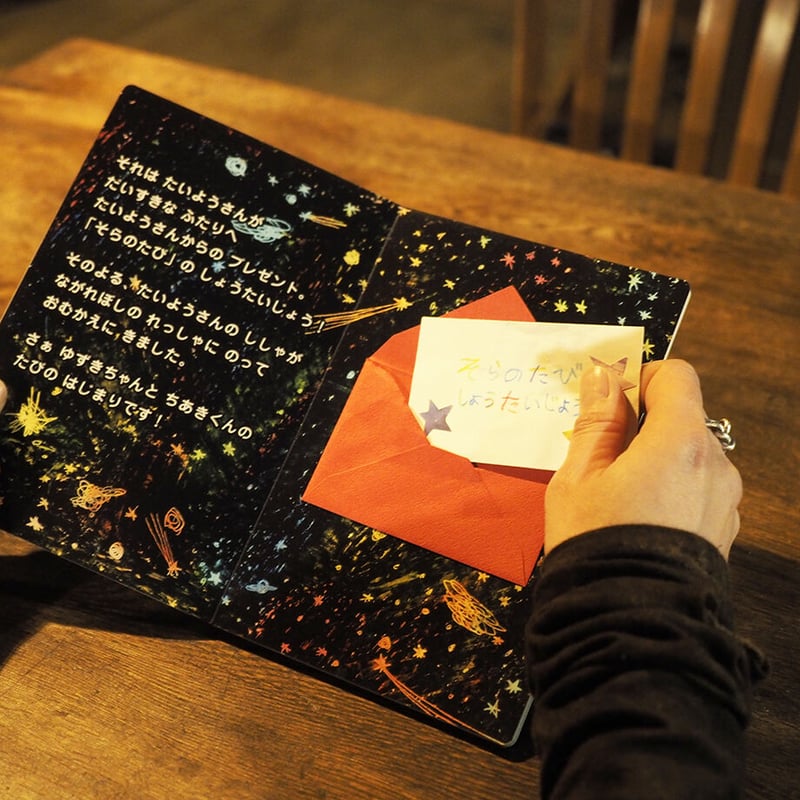 それは たいようさんが
だいすきな ふたりへ
たいようさんからの プレゼント。
「そらのたび」の しょうたいじょう！
そのよる、たいようさんの ししゃが
ながれぼしの れっしゃに のって
おむかえに きました。
さぁ ゆずきちゃんと ちあきくんの
たびの はじまりです！
そらのたび
しょうたいじょう